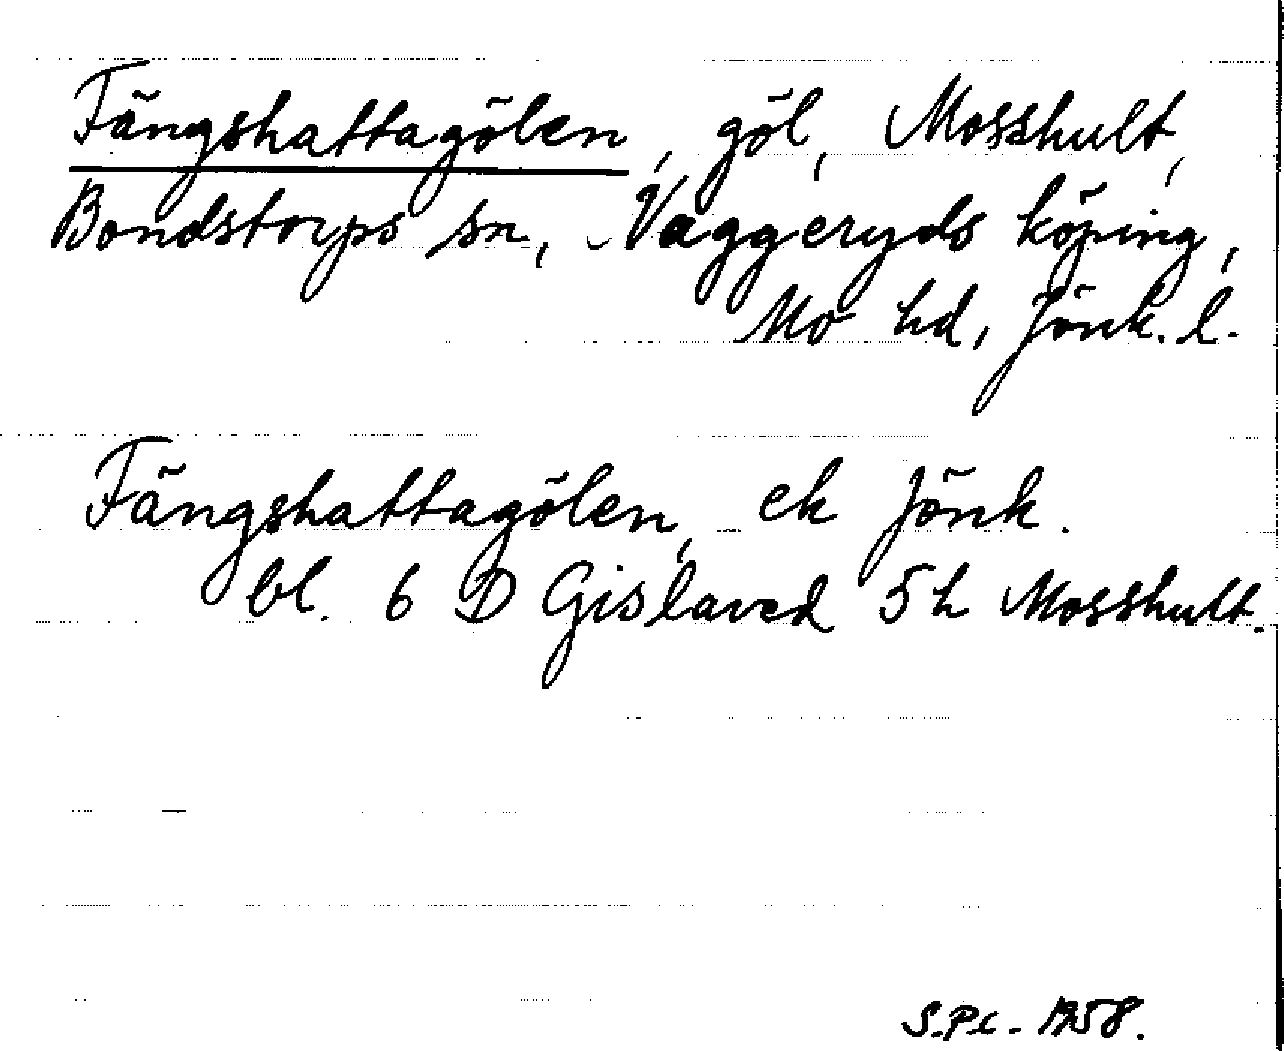 Fängshattagölen, göl, Mosshult,
Bondstorps sn, Vaggeryds köping,
Mo hd, Jönk. l.
Fängshattagölen, ek Jönk.
bl. 6 D Gislaved 5 h Mosshult.
S.P.C. - 1958.